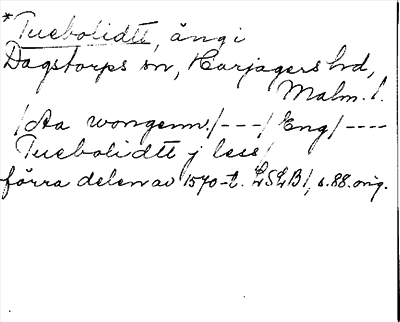 *Tuebolidtt, äng i
Dagstorps sn, Harjagers hd,
Malm. l.
/Aa wongenn./---/Eng/----
Tuebolidtt j less/
förra delen av 1570-t. LSLB/, s. 88. orig.